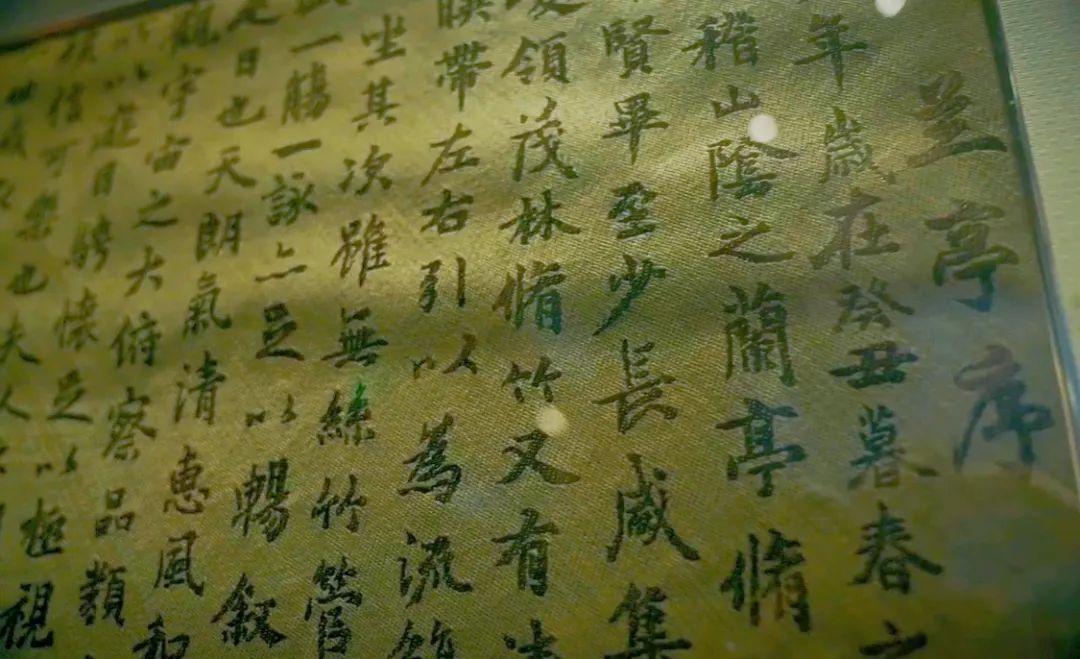 兰亭序
年歲在癸丑暮春之
稽山陰之蘭亭脩
賢畢至少長咸集
峻領茂林脩竹又有
暎帶左右引以為流
坐其次雖無絲竹管
一觴一詠亦足以暢叙
是日也天朗氣清惠風和
觀宇宙之大俯察品類
以遊目騁懷足以極視
信可樂也夫人